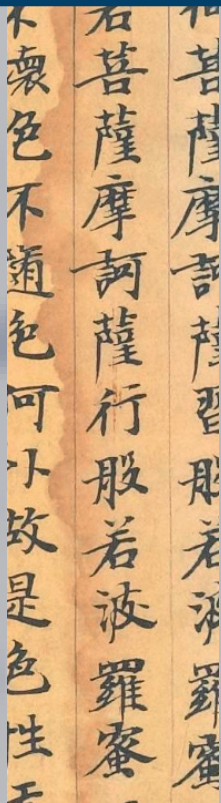 菩薩摩訶薩習般若波羅蜜
若菩薩摩訶薩行般若波羅蜜
不壞色不隨色何以故是色性